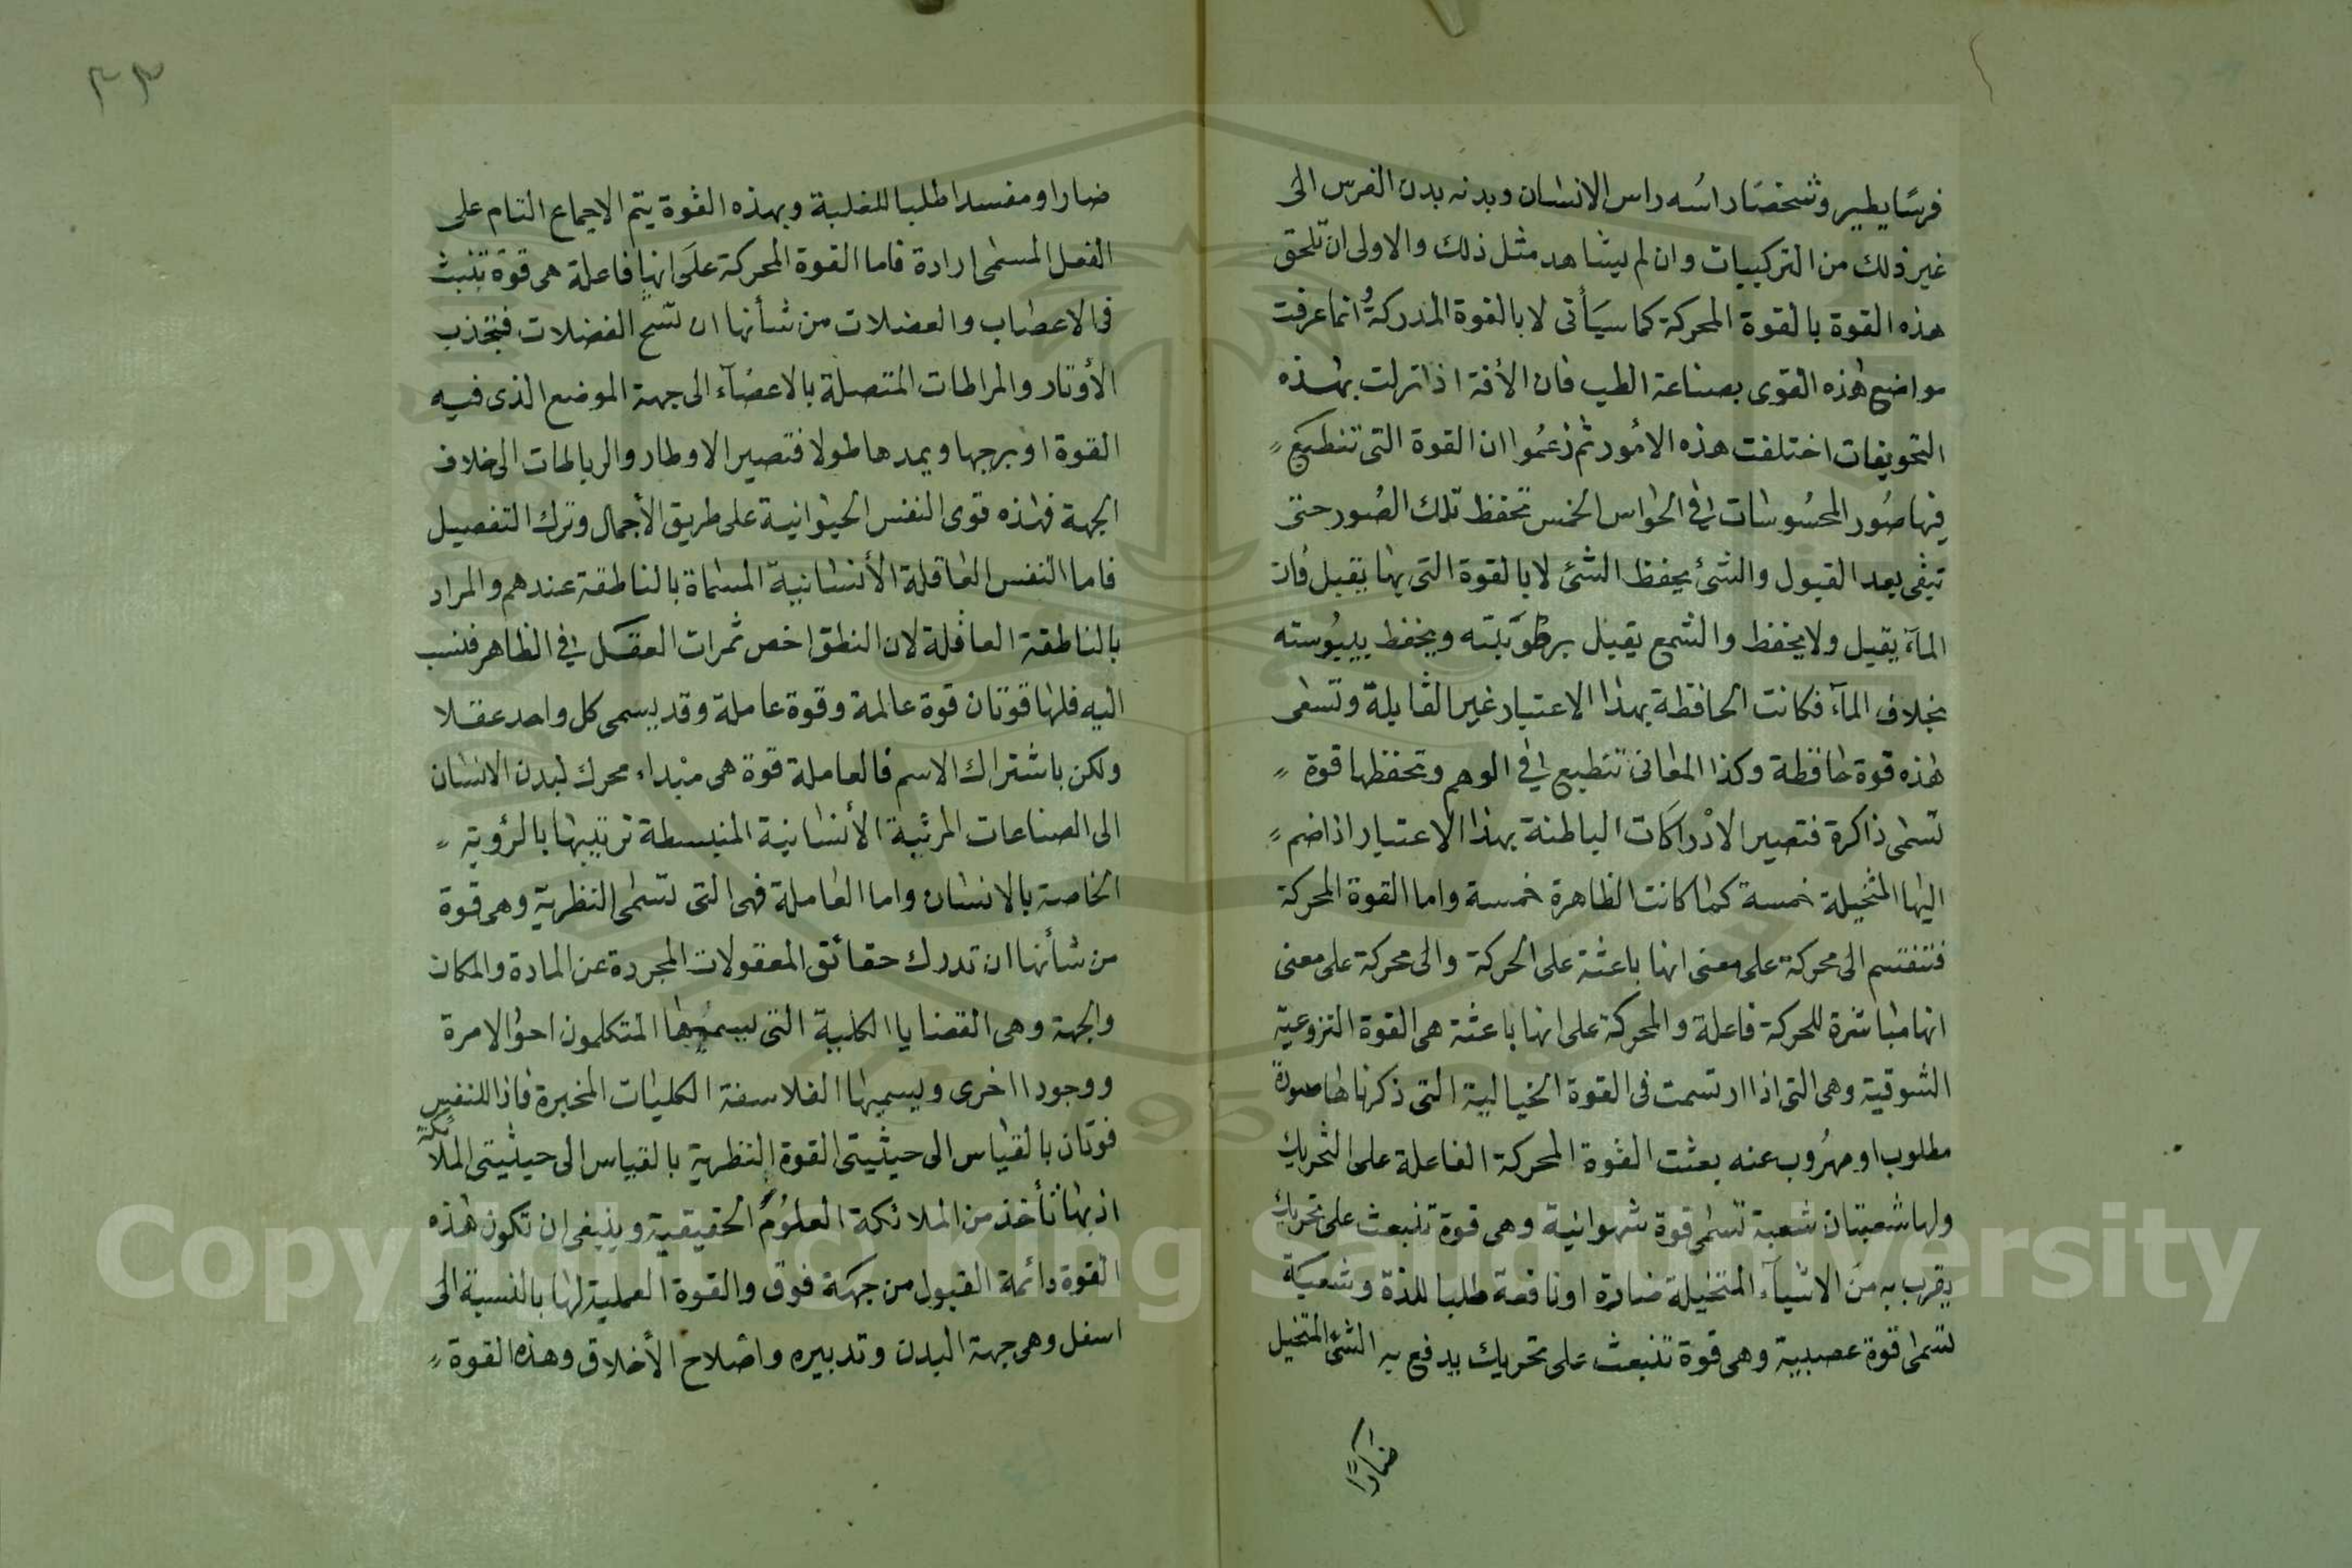 فرسًا يطير وشخصًا راسُه راس الانسان وبدنه بدن الفرس الى
غير ذلك من التركيبات وان لم يشاهد مثل ذلك والاولى ان تلحق
هذه القوة بالقوة المحركة كما سيَأتى لا بالقوة المدركةُ وانما عرفت
مواضع هذه القوى بصناعة الطب فان الأفة اذا نزلت بهذه
التجويفات اختلفت هذه الامُور ثم زعمُوا ان القوة التى تنطبَع
فيها صُور المحسُوسات فى الحواس الخمس تحفظ تلك الصُور حتى
تبقى بعد القبول والشئ يحفظ الشئ لا بالقوة التى بها يقبل فان
المآء يقبل ولا يحفظ والشمع يقبل برطوَبته ويحفظ بيبُوسته
بخلاف المآء فكانت الحافظة بهذا الاعتبار غير القابلة وتسمى
هذه قوة حافظة وكذا المعانى تنطبع فى الوهم وتحفظها قوة
تسمى ذاكرة فتصير الادْراكَات الباطنة بهذا الاعتبار اذا ضم
اليها المتخيلة خمسة كما كانت الظاهرة خمسة واما القوة المحركة
فتنقسم الى محركة على معنى انها باعثة على الحركة والى محركة على معنى
انها مباشرة للحركة فاعلة والمحركة على انها باعثة هى القوة النزوعية
الشوقية وهى التى اذا ارتسمت فى القوة الخيالية التى ذكرناها صورة
مطلوب او مهرُوب عنه بعثت القوة المحركة الفاعلة على التحريك
ولها شعبتان شعبة تسمى قوة شهوانية وهى قوة تنبعث على تحريك
يقرب به من الاشيآء المتخيلة ضارة او نافعة طلبا للذة وشعبَة
تسمى قوة عصبية وهى قوة تنبعث على تحريك يدفع به الشئ المتخيل
ضارًا
٣٣
ضارا او مفسدا طلبا للغلبة وبهذه القوة يتم الاجماع التام على
الفعل المسمى ارادة فاما القوة المحركة علَى انها فاعلة هى قوة تنبث
فى الاعصاب والعضلات من شأنها ان تسح الفضلات فتجذب
الأوتار والمراطات المتصلة بالاعضآء الى جهة الموضع الذى فيه
القوة او برجها ويمدها طولا فتصير الاوطار والرباطات الى خلاف
الجهة فهذه قوى النفس الحيوانية على طريق الأجمال وترك التفصيل
فاما النفس العاقلة الأنسانية المسماة بالناطقة عندهم والمراد
بالناطقة العاقلة لان النطق اخص ثمرات العقَل فى الظاهر فنسب
اليه فلها قوتان قوة عالمة وقوة عاملة وقد يسمى كل واحد عقلا
ولكن باشتراك الاسم فالعاملة قوة هى مبداء محرك لبدن الانسان
الى الصناعات المرتبة الأنسانية المنبسطة ترتيبها بالرؤية
الخاصة بالانسان واما العاملة فهى التى تسمى النظرية وهى قوة
من شأنها ان تدرك حقائق المعقولات المجردة عن المادة والمكان
والجهة وهى القضايا الكلية التى يسميها المتكلمون احوالا مرة
ووجودا اخرى ويسميها الفلاسفة الكليات المخبرة فاذا للنفس
قوتان بالقياس الى حيثيتى القوة النظرية بالقياس الى حيثيتى الملائكة
اذ بها تأخذ من الملائكة العلوُمُ الحقيقية وينبغى ان تكون هذه
القوة دائمة القبول من جهَة فوق والقوة العملية لها بالنسبة الى
اسفل وهى جهة البدن وتدبيره واصلاح الأخلاق وهذه القوة
Copyright © King Saud University